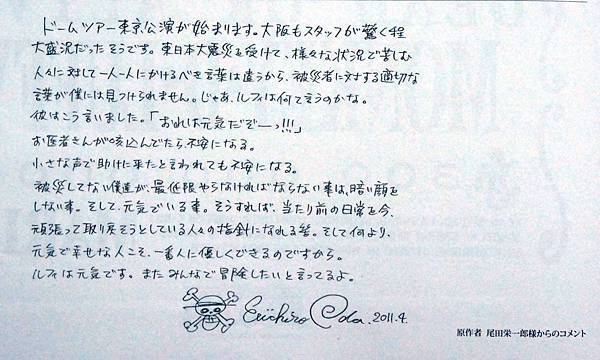 ドームツアー東京公演が始まります。大阪もスタッフが驚く程
大盛況だったそうです。東日本大震災を受けて、様々な状況で苦しむ
人々に対して一人一人にかけるべき言葉は違うから、被災者に対する適切な
言葉が僕には見つけられません。じゃあ、ルフィは何て言うのかな。
彼はこう言いました。「おれは元気だぞーっ!!!」
お医者さんが咳込んでたら不安になる。
小さな声で助けに来たと言われても不安になる。
被災してない僕達が、最低限やらなければならない事は、暗い顔を
しない事。そして、元気でいる事。そうすれば、当たり前の日常を今、
頑張って取り戻そうとしている人々の指針になれる筈。そして何より、
元気で幸せな人こそ、一番人に優しくできるのですから。
ルフィは元気です。またみんなで冒険したいと言ってるよ。
Eiichiro Oda. 2011.4.
原作者 尾田栄一郎様からのコメント